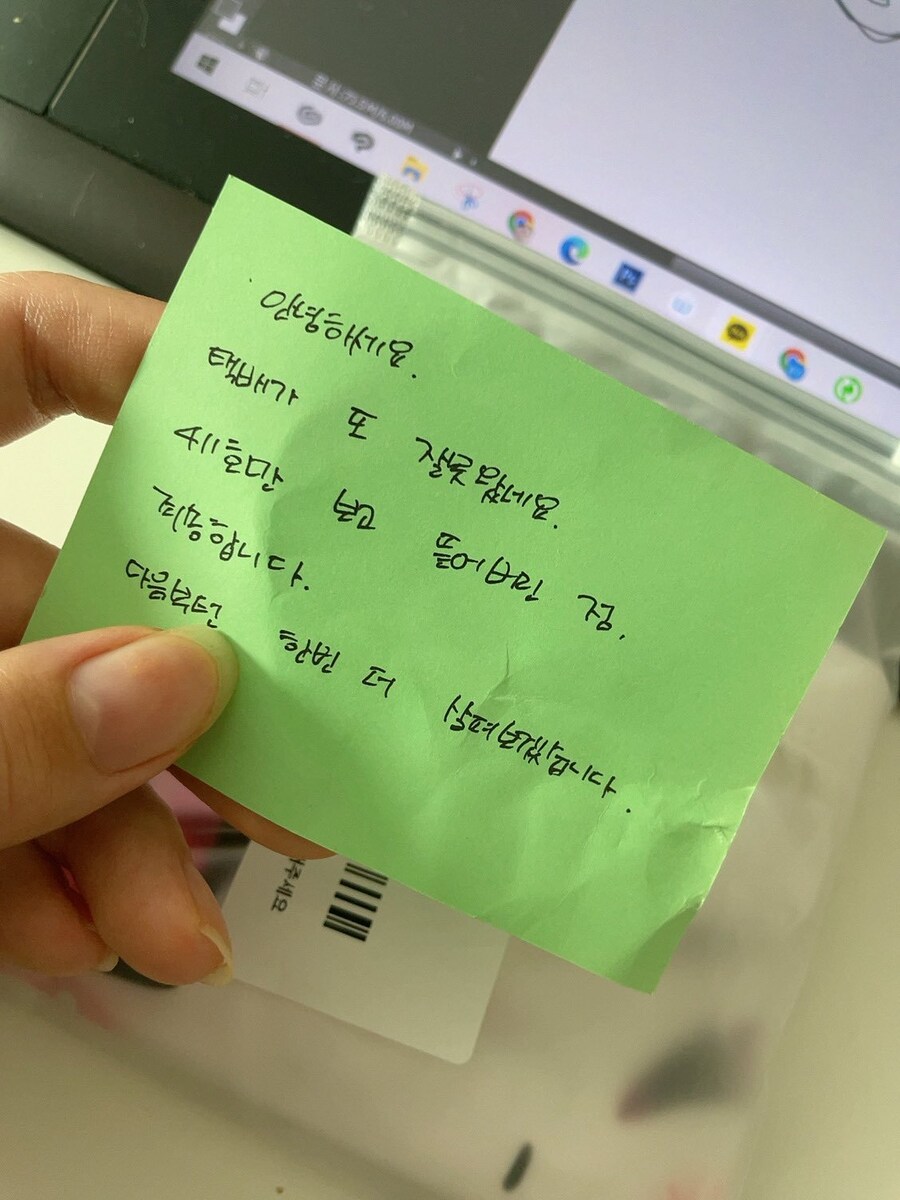 안녕하세요.
택배가 또 잘못왔네요.
411호만 보고 뜯어버린 점.
죄송합니다.
다음부턴 한번 더 살펴보겠습니다.
주세요
Ps